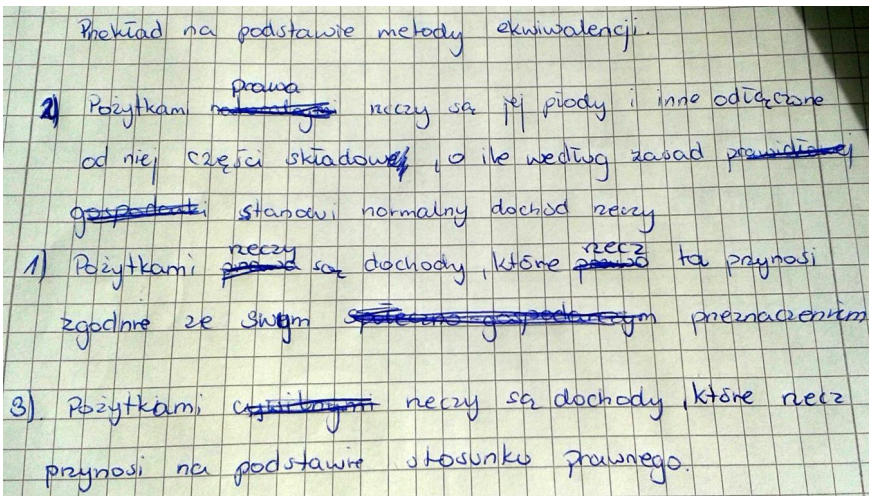 Przekład na podstawie metody ekwiwalencji.
prawa
2) Pożytkami rzeczy są jej płody i inne odłączone
od niej części składowe, o ile według zasad prawidłowej
gospodarki stanowi normalny dochód rzeczy
rzeczy rzecz
1) Pożytkami prawa są dochody, które prawo ta przynosi
zgodnie ze swym społeczno gospodarczym przeznaczeniem
3). Pożytkami cywilnymi rzeczy są dochody, które rzecz
przynosi na podstawie stosunku prawnego.